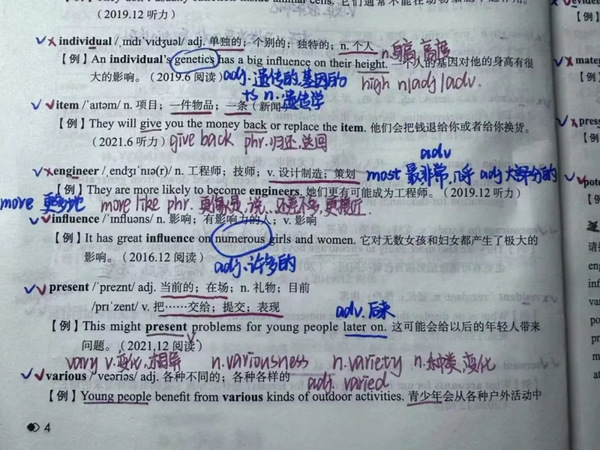 (2019.12 听力)
individual /ˌɪndɪˈvɪdʒuəl/ adj. 单独的；个别的；独特的；n. 个人
n.身高 高度
【例】An individual's genetics has a big influence on their height. 一个人的基因对他的身高有很
大的影响。(2019.6 阅读) adj.遗传的.基因的 high n|adj|adv.
n.遗传学
item /ˈaɪtəm/ n. 项目；一件物品；一条（新闻）
【例】They will give you the money back or replace the item. 他们会把钱退给你或者给你换货。
(2021.6 听力) give back phr.归还.送回
adv
engineer /ˌendʒɪˈnɪə(r)/ n. 工程师；技师；v. 设计制造；策划 most 最.非常,几乎 adj 大部分的
【例】They are more likely to become engineers. 她们更有可能成为工程师。(2019.12 听力)
more 更多地 more like phr.
influence /ˈɪnfluəns/ n. 影响；有影响力的人；v. 影响
【例】It has great influence on numerous girls and women. 它对无数女孩和妇女都产生了极大的
影响。(2016.12 阅读) adj.许多的
present /ˈpreznt/ adj. 当前的；在场；n. 礼物；目前
/prɪˈzent/ v. 把……交给；提交；表现 adv.后来
【例】This might present problems for young people later on. 这可能会给以后的年轻人带来
问题。(2021.12 阅读)
vary v.变化,相异 n.variousness n.variety n.种类,变化
various /ˈveəriəs/ adj. 各种不同的；各种各样的 adj. varied
【例】Young people benefit from various kinds of outdoor activities. 青少年会从各种户外活动中
4